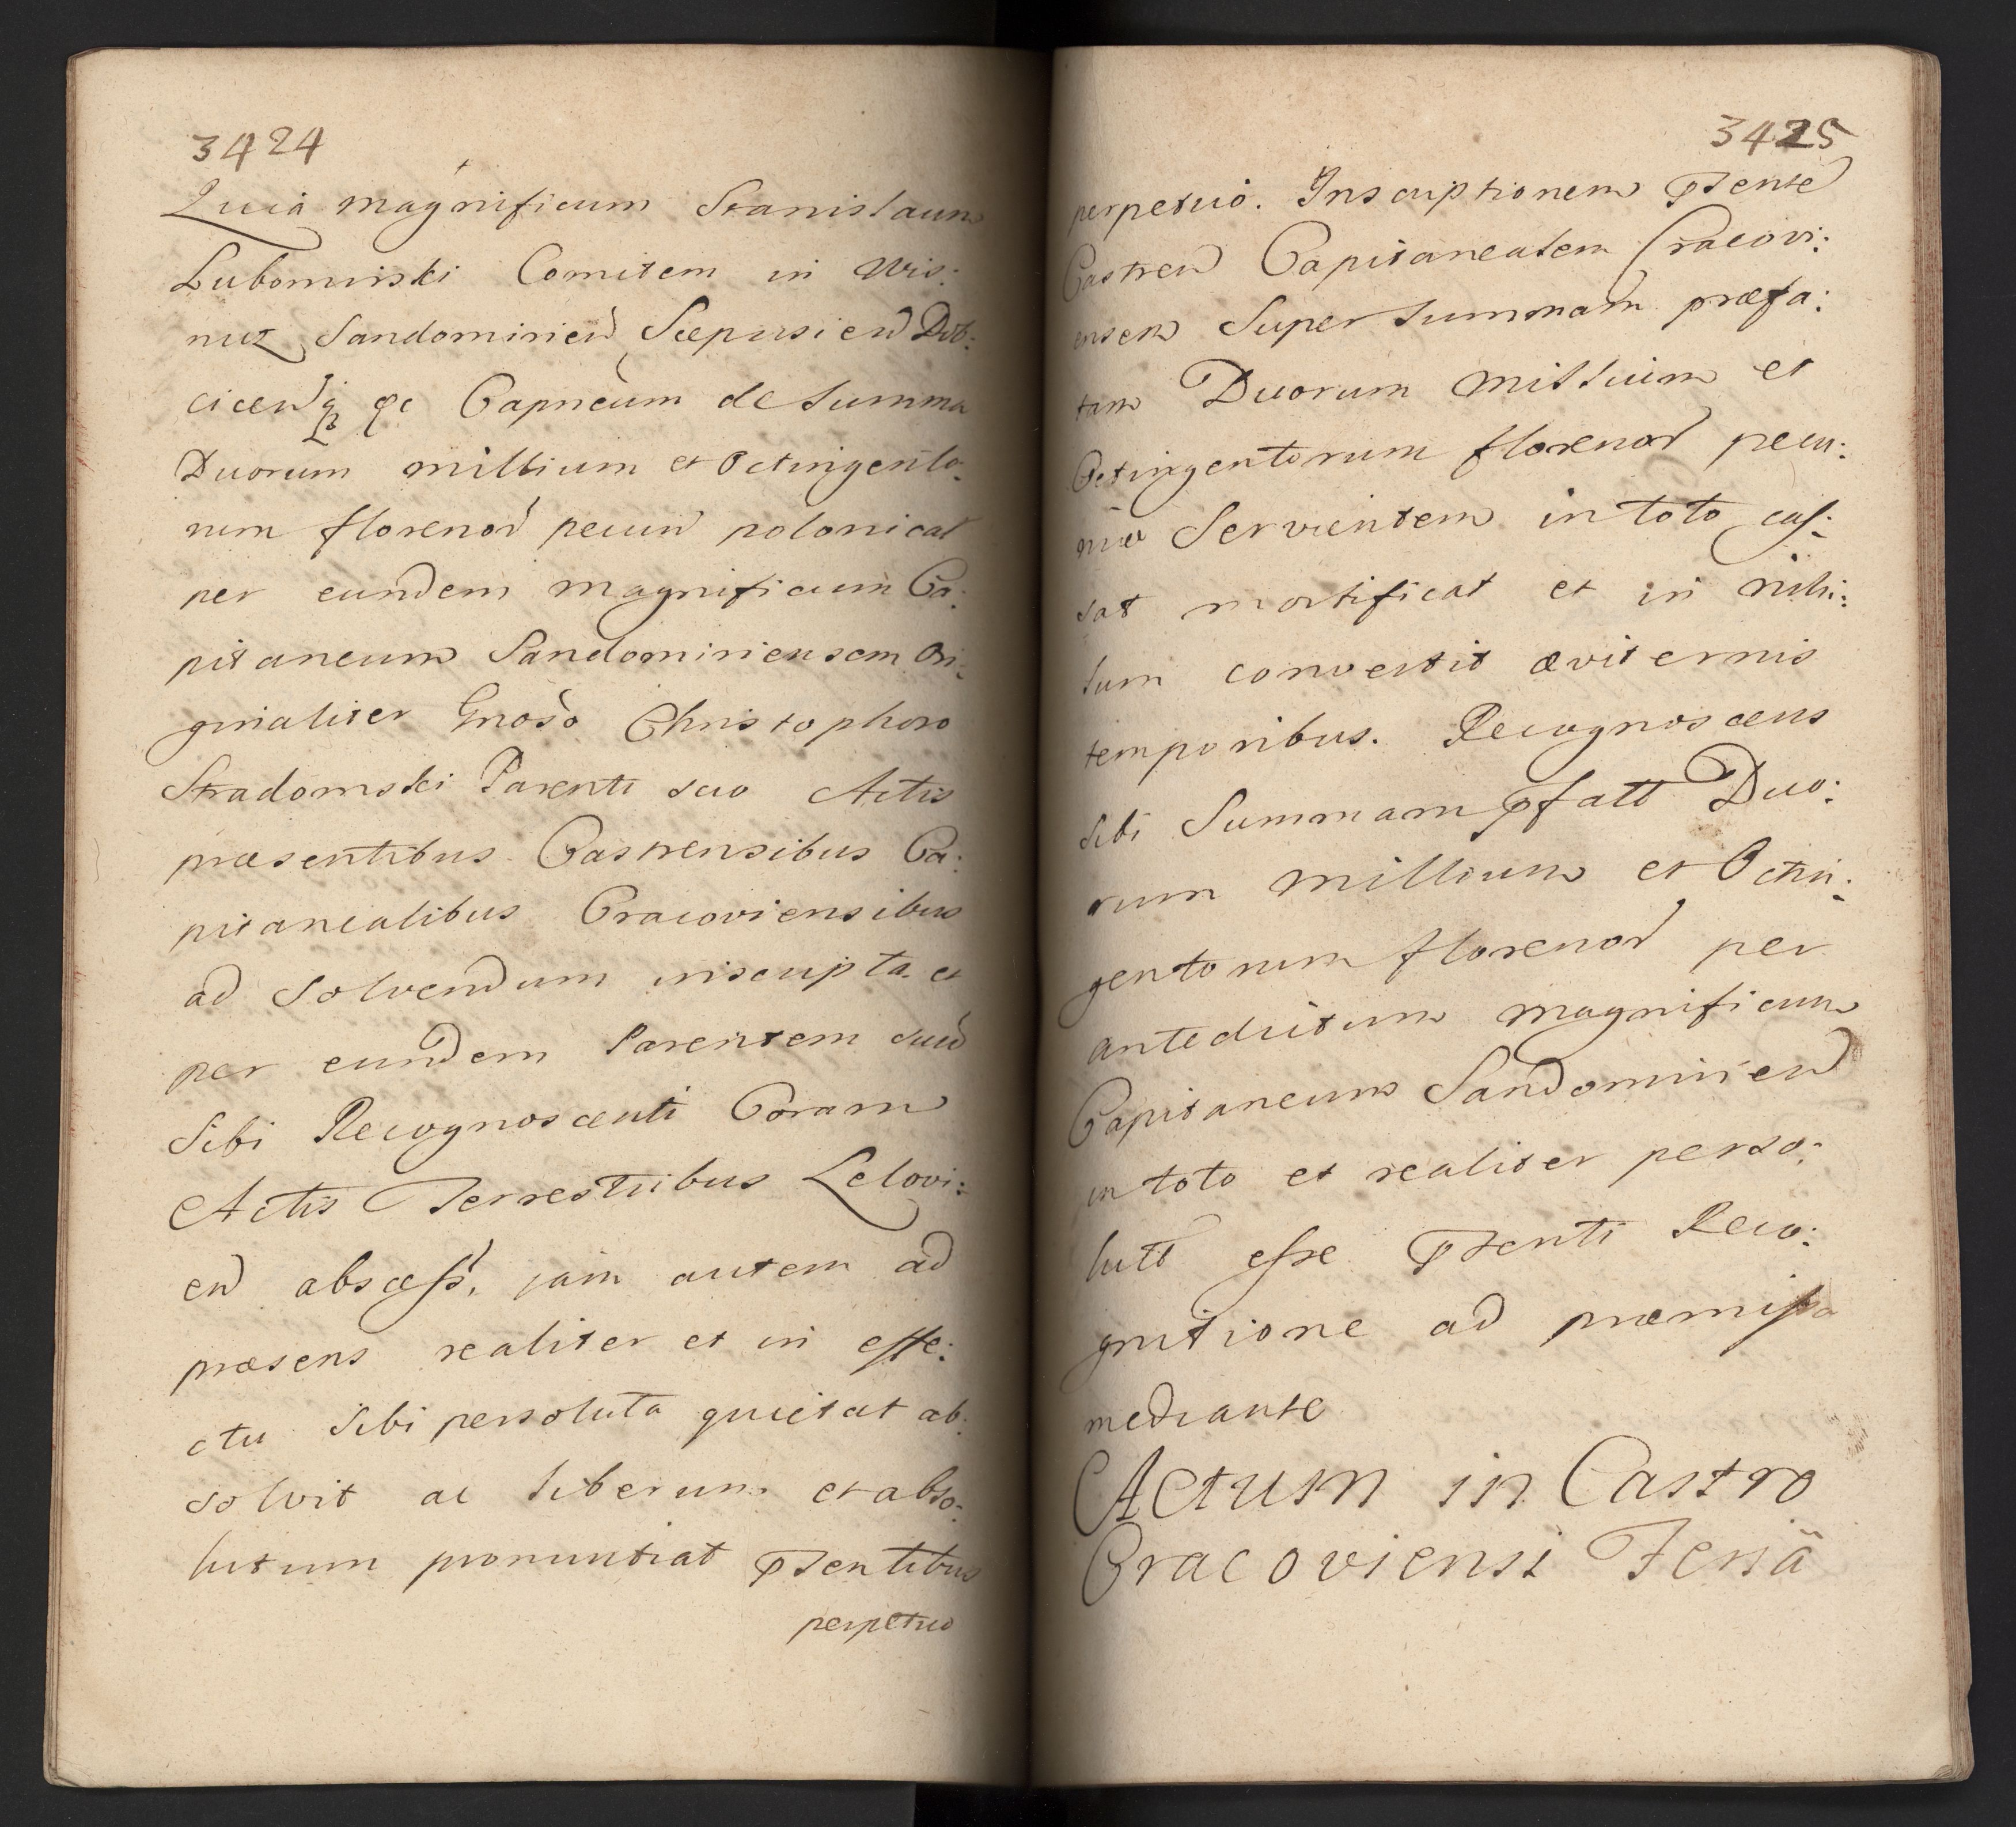 3424
Quia magnificum Stanislaum
Lubomirski Comitem in Wis:
nicz Sandomirien Scepusien Dob:
cicen &c Capneum de summa
Duorum millium et Octingento:
rum florenor pecun polonical
per eundem magnificum Ca:
pitaneum Sandomiriensem Ori:
ginaliter Gnoso Christophoro
Stradomski Parenti suo Actis
præsentibus Castrensibus Ca:
pitanealibus Cracoviensibus
ad solvendum inscripta et
per eundem Parentem suu
Sibi Recognoscenti Coram
Actis Terrestribus Lelovi:
en abscess, jam autem ad
præsens realiter et in effe:
ctu Sibi persoluta quietat ab:
solvit ac liberum et abso:
lutum pronuntiat psentibus
perpetuo
3425
perpetuo. Inscriptionem psente
Castren Capitanealem Cracovi:
ensem Super summam præfa:
tam Duorum millium et
Octingentorum florenor pecu:
niæ Servientem in toto cas:
sat mortificat et in nihi:
lum convertit æviternis
temporibus. Recognoscens
Sibi Summam pfatt Duo:
rum millium et Octin:
gentorum florenor per
antedictum magnificum
Capitaneum Sandomirien
in toto et realiter perso:
lutt esse psenti Reco:
gnitione ad præmissa
mediante
Actum in Castro
Cracoviensi Feriâ